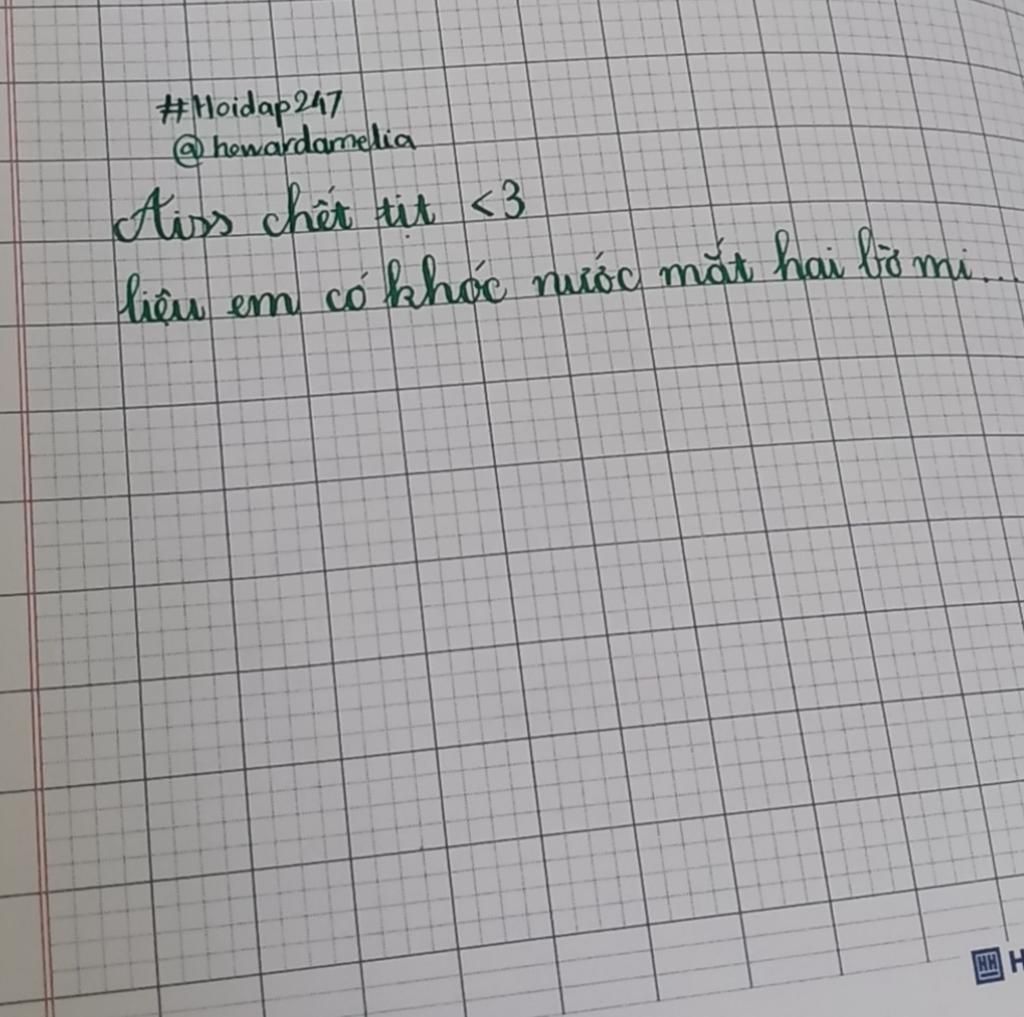 #Hoidap247
@howardamelia
Miss chết tịt <3
liệu em có khóc nước mắt hai bờ mi...
HH H